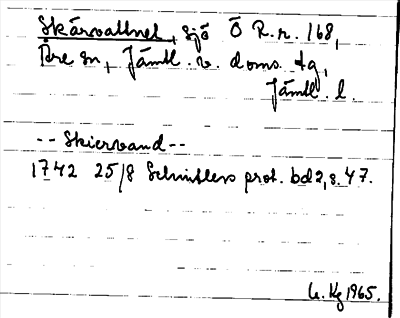 Skärvattnet, sjö Ö R.r. 168,
Åre sn, Jämtl. v. doms. tg,
Jämtl. l.
-- Skiervand --
1742 25/8 Schnitlers prot. bd 2, s. 47.
G. Kg 1965.